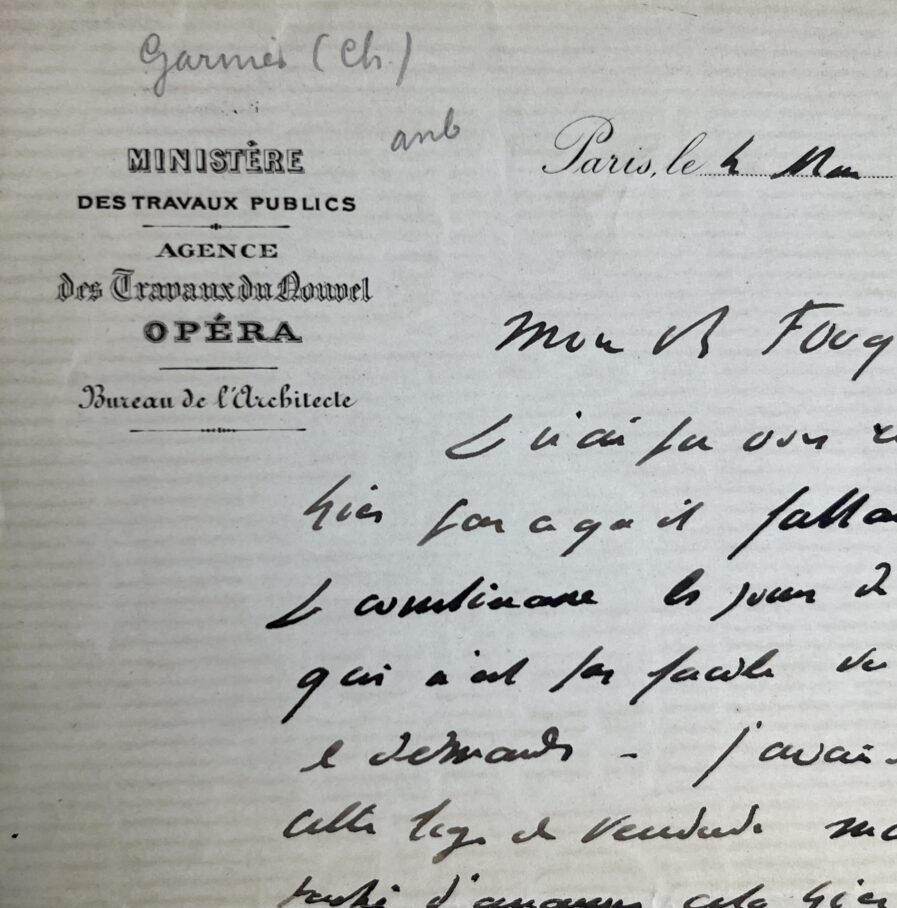 Garnier (Ch.)
anb
MINISTÈRE
DES TRAVAUX PUBLICS
AGENCE
des Travaux du Nouvel
OPÉRA
Bureau de l'Architecte
Paris, le 4 Mar
Mon ch Fouq
Je n'ai pu vous
hier parce qu'il fallai
les jours de
qui n'est pas facile vu
le demandes - j'avais
cette loge de Vendredi ma
taché d'arranger cela hier